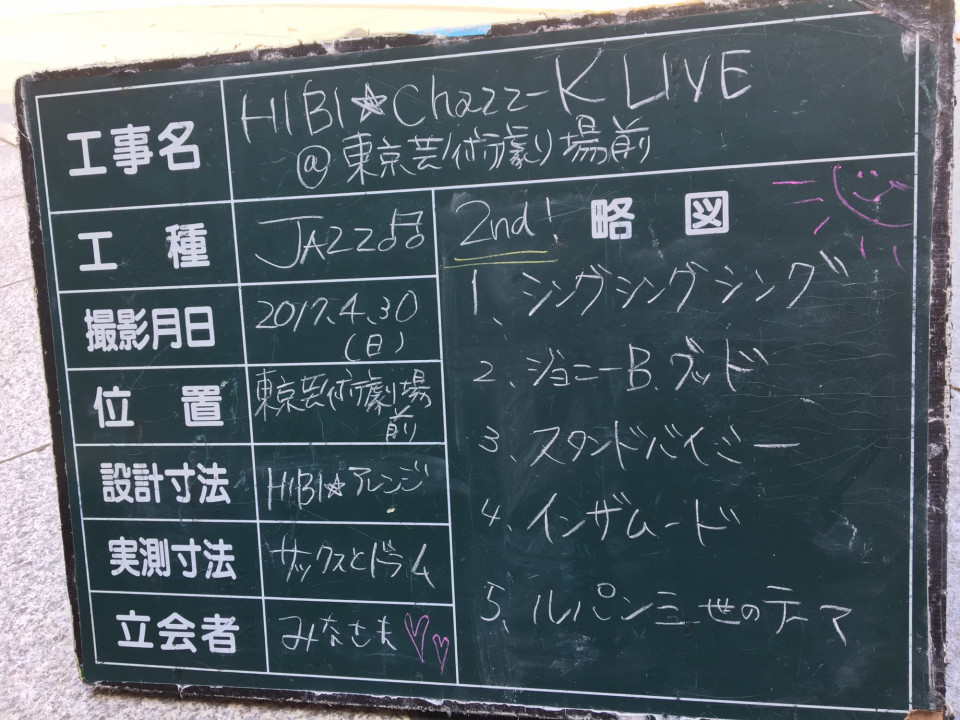 工事名
HIBI☆Chazz-K LIVE
@東京芸術劇場前
工種
JAZZ♫
撮影月日
2017.4.30
(日)
位置
東京芸術劇場
前
設計寸法
HIBI☆アレンジ
実測寸法
サックスとドラム
立会者
みなさま♡♡
2nd! 略図
1、シングシングシング
2、ジョニーB.グッド
3、スタンドバイミー
4、インザムード
5、ルパン三世のテーマ